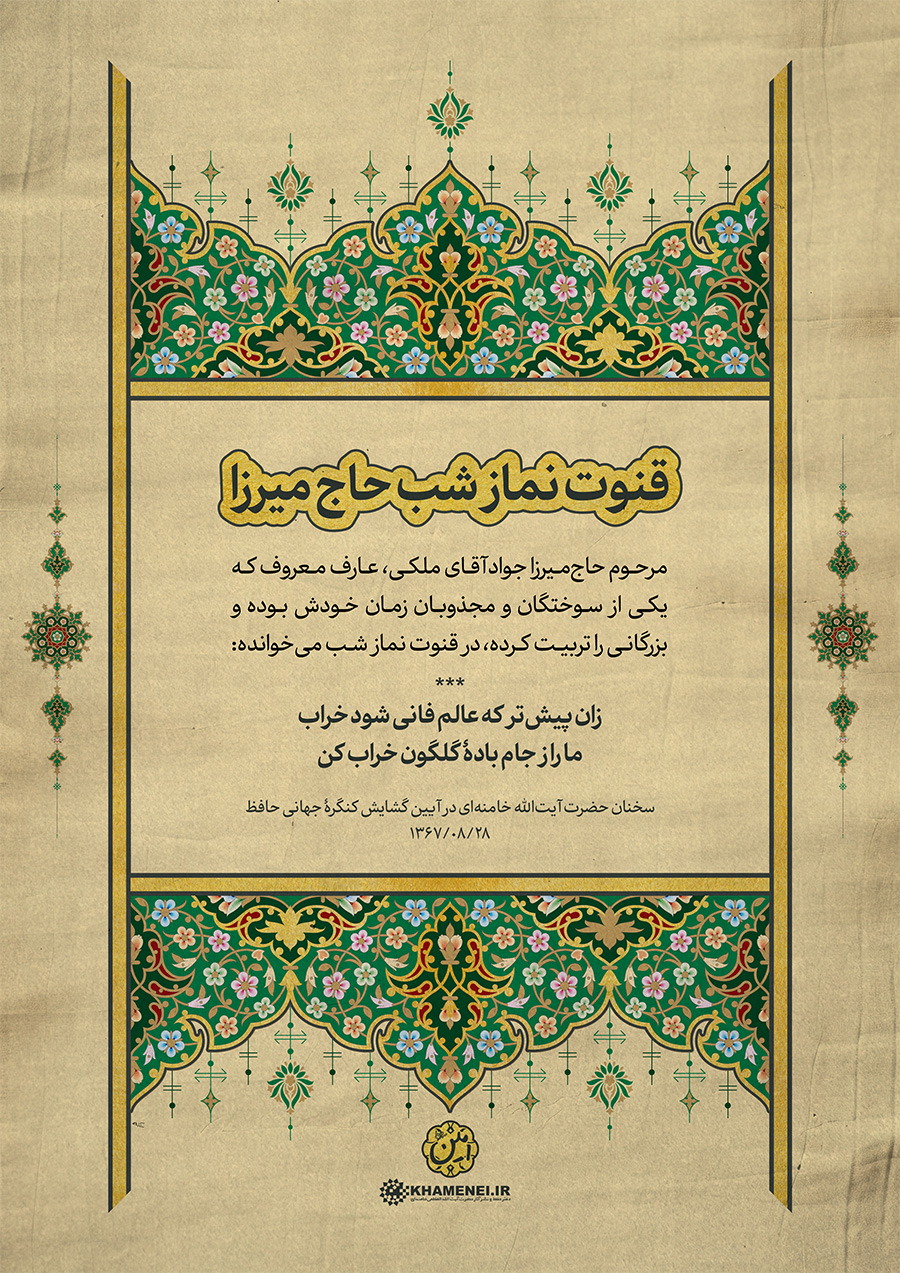 قنوت نماز شب حاج میرزا
مرحوم حاج‌میرزا جوادآقای ملکی، عارف معروف که
یکی از سوختگان و مجذوبان زمان خودش بوده و
بزرگانی را تربیت کرده، در قنوت نماز شب می‌خوانده:
***
زان پیش‌تر که عالم فانی شود خراب
ما را ز جام بادهٔ گلگون خراب کن
سخنان حضرت آیت‌الله خامنه‌ای در آیین گشایش کنگرهٔ جهانی حافظ
۱۳۶۷/۰۸/۲۸
KHAMENEI.IR